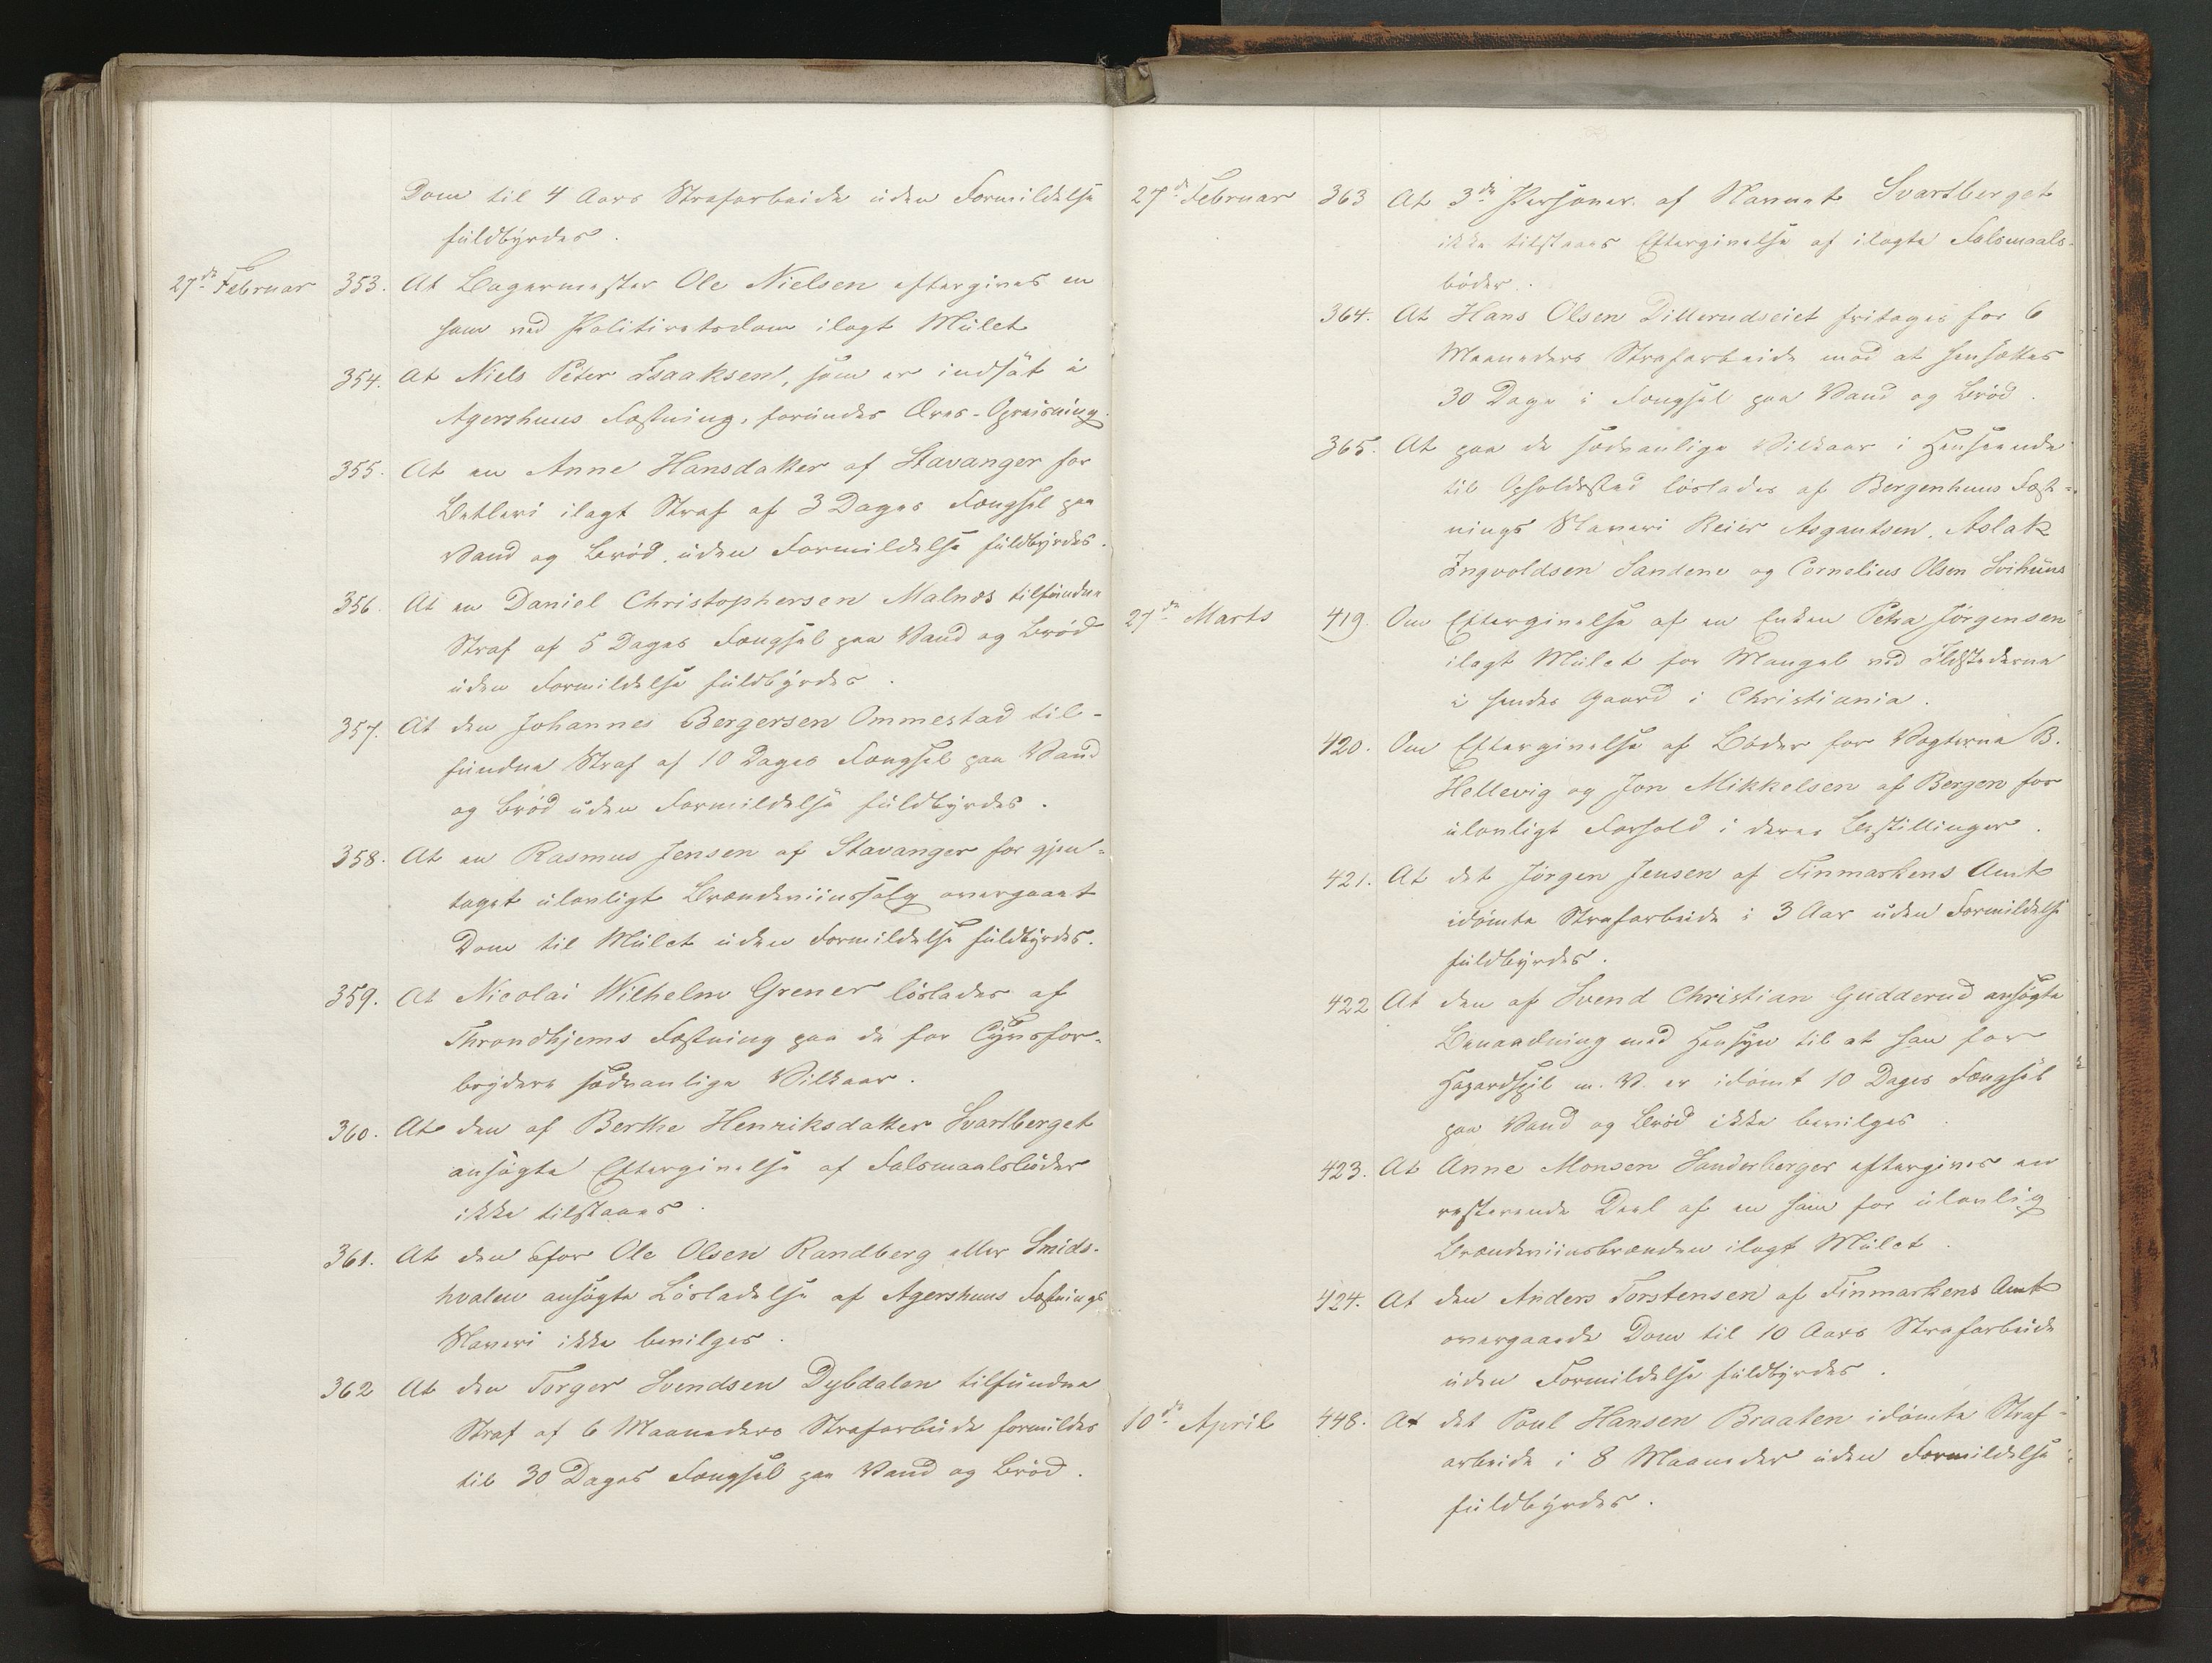 Dom til 4 Aars Strafarbeide uden Formildelse
fuldbyrdes.
27de Februar 353. At Bagermester Ole Nielsen eftergives en
ham ved Politiretsdom ilagt Mulct
354. At Niels Peter Isaaksen, som er indsat i
Agershuus Fæstning, forundes Æres-Opreisning.
355. At en Anne Hansdatter af Stavanger for
Betleri ilagt Straf af 3 Dages Fængsel paa
Vand og Brød uden Formildelse fuldbyrdes.
356. At en Daniel Christophersen Malnæs tilfundne
Straf af 5 Dages Fængsel paa Vand og Brød
uden Formildelse fuldbyrdes.
357. At den Johannes Bergersen Ommestad til-
fundne Straf af 10 Dages Fængsel paa Vand
og Brød uden Formildelse fuldbyrdes.
358. At en Rasmus Jensen af Stavanger for gjen-
taget ulovligt Brændeviinssalg overgaaet
Dom til Mulct uden Formildelse fuldbyrdes.
359. At Nicolai Wilhelm Grener löslades af
Throndhjems Fæstning paa de for Livsfor-
brydere sædvanlige Vilkaar.
360. At den af Berthe Henriksdatter Svartberget
ansøgte Eftergivelse af Falsmaalsbøder
ikke tilstaaes.
361. At den for Ole Olsen Randberg eller Smids-
hvalen ansøgte Løsladelse af Agershuus Fæstnings
Slaveri ikke bevilges.
362 At den Torger Svendsen Dybdalen tilfundne
Straf af 6 Maaneders Strafarbeide formildes
til 30 Dages Fængsel paa Vand og Brød.
27de Februar 363 At 3de Personer af Navnet Svartberget
ikke tilstaaes Eftergivelse af ilagte Falsmaals-
bøder.
364. At Hans Olsen Dillerudseiet fritages for 6
Maaneders Strafarbeide mod at hensættes
30 Dage i Fængsel paa Vand og Brød.
365. At paa de sædvanlige Vilkaar i Henseende
til Opholdssted löslades af Bergenhuus Fæst-
nings Slaveri Reier Asgautsen, Aslak
Ingvoldsen Sandene og Cornelius Olsen Svihuus
27de Marts 419. Om Eftergivelse af en Enken Petra Jörgensen
ilagt Mulct for Mangel ved Ildstederne
i hendes Gaard i Christiania.
420. Om Eftergivelse af Bøder for Vægterne B.
Hellevig og Jon Mikkelsen af Bergen for
ulovligt Forhold i deres Bestillinger.
421. At det Jörgen Jensen af Finmarkens Amt
idømte Strafarbeide i 3 Aar uden Formildelse
fuldbyrdes.
422 At den af Svend Christian Gudderud ansøgte
Benaadning med Hensyn til at han for
Hazardspil m. V. er idømt 10 Dages Fængsel
paa Vand og Brød ikke bevilges
423. At Anne Monsen Sanderberger eftergives en
resterende Deel af en ham for ulovlig
Brændeviinsbrænden ilagt Mulct.
424. At den Anders Torstensen af Finmarkens Amt
overgaaede Dom til 10 Aars Strafarbeide
uden Formildelse fuldbyrdes.
10de April 448. At det Poul Hansen Braaten idømte Straf-
arbeide i 8 Maaneder uden Formildelse
fuldbyrdes.